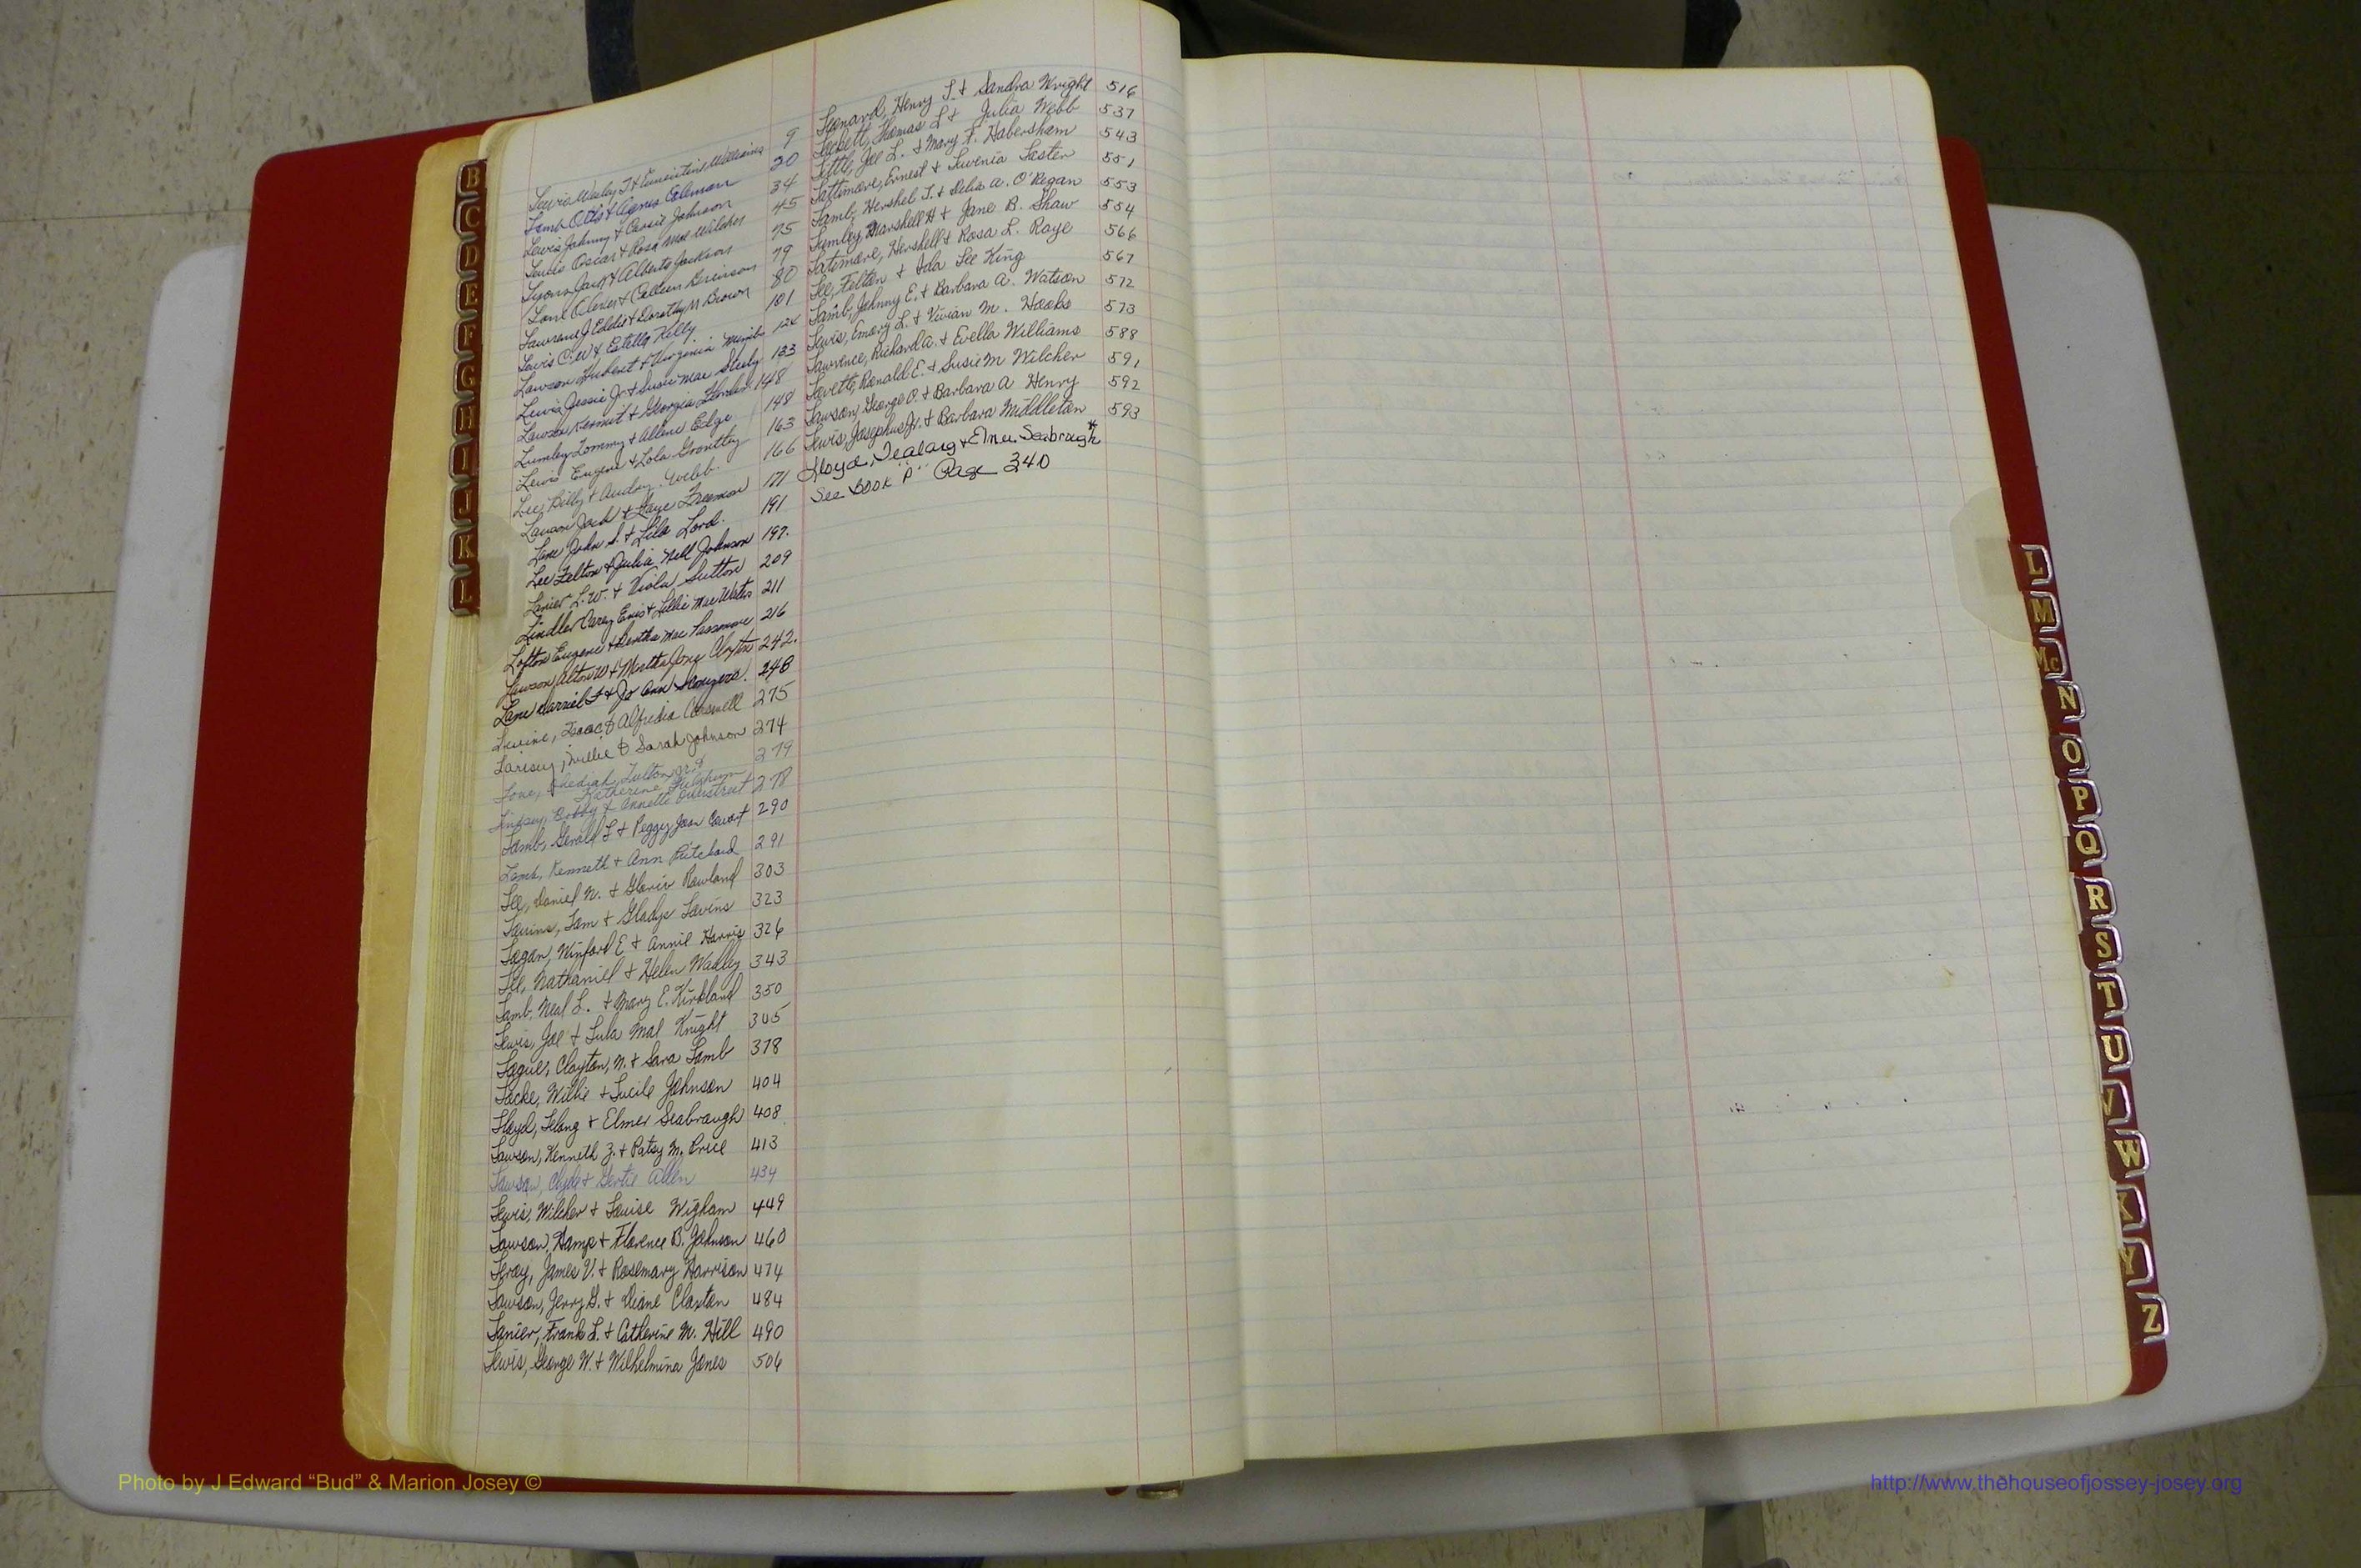 Lewis Wesley J & Ernestine Williams 9
Lamb Otis & Agnes Coleman 20
Lewis Johnny & Cassie Johnson 34
Lewis Oscar & Rosa Mae Wilcher 45
Lyons Jack & Alberta Jackson 75
Lane & Colleen Brinson 79
Lawrence J Eddie & Dorothy M Brown 80
Lewis C.W & Estelle Kelly 101
Lawson Hubert & Virginia
Lewis Jessie Jr & Susie Mae 133
Lawson Kermit & Georgia 148
Lumley Tommy & Allene Edge 148
Lewis Eugene & Lola Grantley 163
Lee, Billy & Audry Webb. 166
Lawson Jack & Faye Freeman 171
Lane John S. & Lila Lord. 191
Lee Felton & Julia Nell Johnson 197.
Lanier L.W. & Viola Sutton 209
Lindler Carey Enis & Lillie Mae Water 211
Lofton Eugene & Bertha Mae Passmore 216
Lawson, Alton W & Martha Jane Clayton 242.
Lane & Jo Ann 248
Levine, Isaac & Alfredia Carswell 275
Larisey, Willie & Sarah Johnson 274
Love, Obediah Fulton Jr. & 279
Katherine Fulghum
Lindsey, Bobby & Annette Overstreet 278
Lamb, Gerald L & Peggy Jean Cowart 290
Lamb, Kenneth & Ann Pritchard 291
Lee, Daniel N. & Gloria Rowland 303
Lavins, Sam & Gladys Lavins 323
Logan, Winford E & Annie Harris 326
Lee, Nathaniel & Helen Wadley 343
Lamb, Neal L. & Mary E. Kirkland 350
Lewis, Joe & Lula Mae Knight 365
Lague, Clayton, N. & Sara Lamb 378
Locke, Willie & Lucile Johnson 404
Lloyd, Telong & Elmer Seabrough 408
Lawson, Kenneth Z. & Patsy M. Price 413
Lawson, Clyde & Gertie Allen 434
Lewis, Wilcher & Louise Wigham 449
Lawson, Hamp & Florence B. Johnson 460
Leroy, James V. & Rosemary Harrison 474
Lawson, Jerry G. & Diane Claxton 484
Lanier, Frank L. & Catherine M. Hill 490
Lewis, George W. & Wilhelmina Jones 506
Leonard, Henry L. & Sandra Wright 516
Lockett, Thomas L & Julia Webb 537
Little, Joe L. & Mary F. Habersham 543
Lattimore, Ernest & Luvenia Laster 551
Lamb, Hershel T. & Delia A. O'Regan 553
Lumley, Marshell H & Jane B. Shaw 554
Latimore, Hershell & Rosa L. Raye 566
Lee, Felton & Ida Lee King 567
Lamb, Johnny E. & Barbara A. Watson 572
Lewis, Emory L. & Vivian M. Hooks 573
Lawrence, Richard A. & Evella Williams 588
Lovett, Ronald E. & Susie M Wilcher 591
Lawson, George O. & Barbara A Henry 592
Lewis, Josephus H. & Barbara Middleton 593
Lloyd, Tealang & Elmer Seabrough*
See Book "P" Page 340
B
C
D
E
F
G
H
I
J
K
L
L
M
Mc
N
O
P
Q
R
S
T
U
V
W
X
Y
Z
Photo by J Edward “Bud” & Marion Josey ©
http://www.thehouseofjossey-josey.org